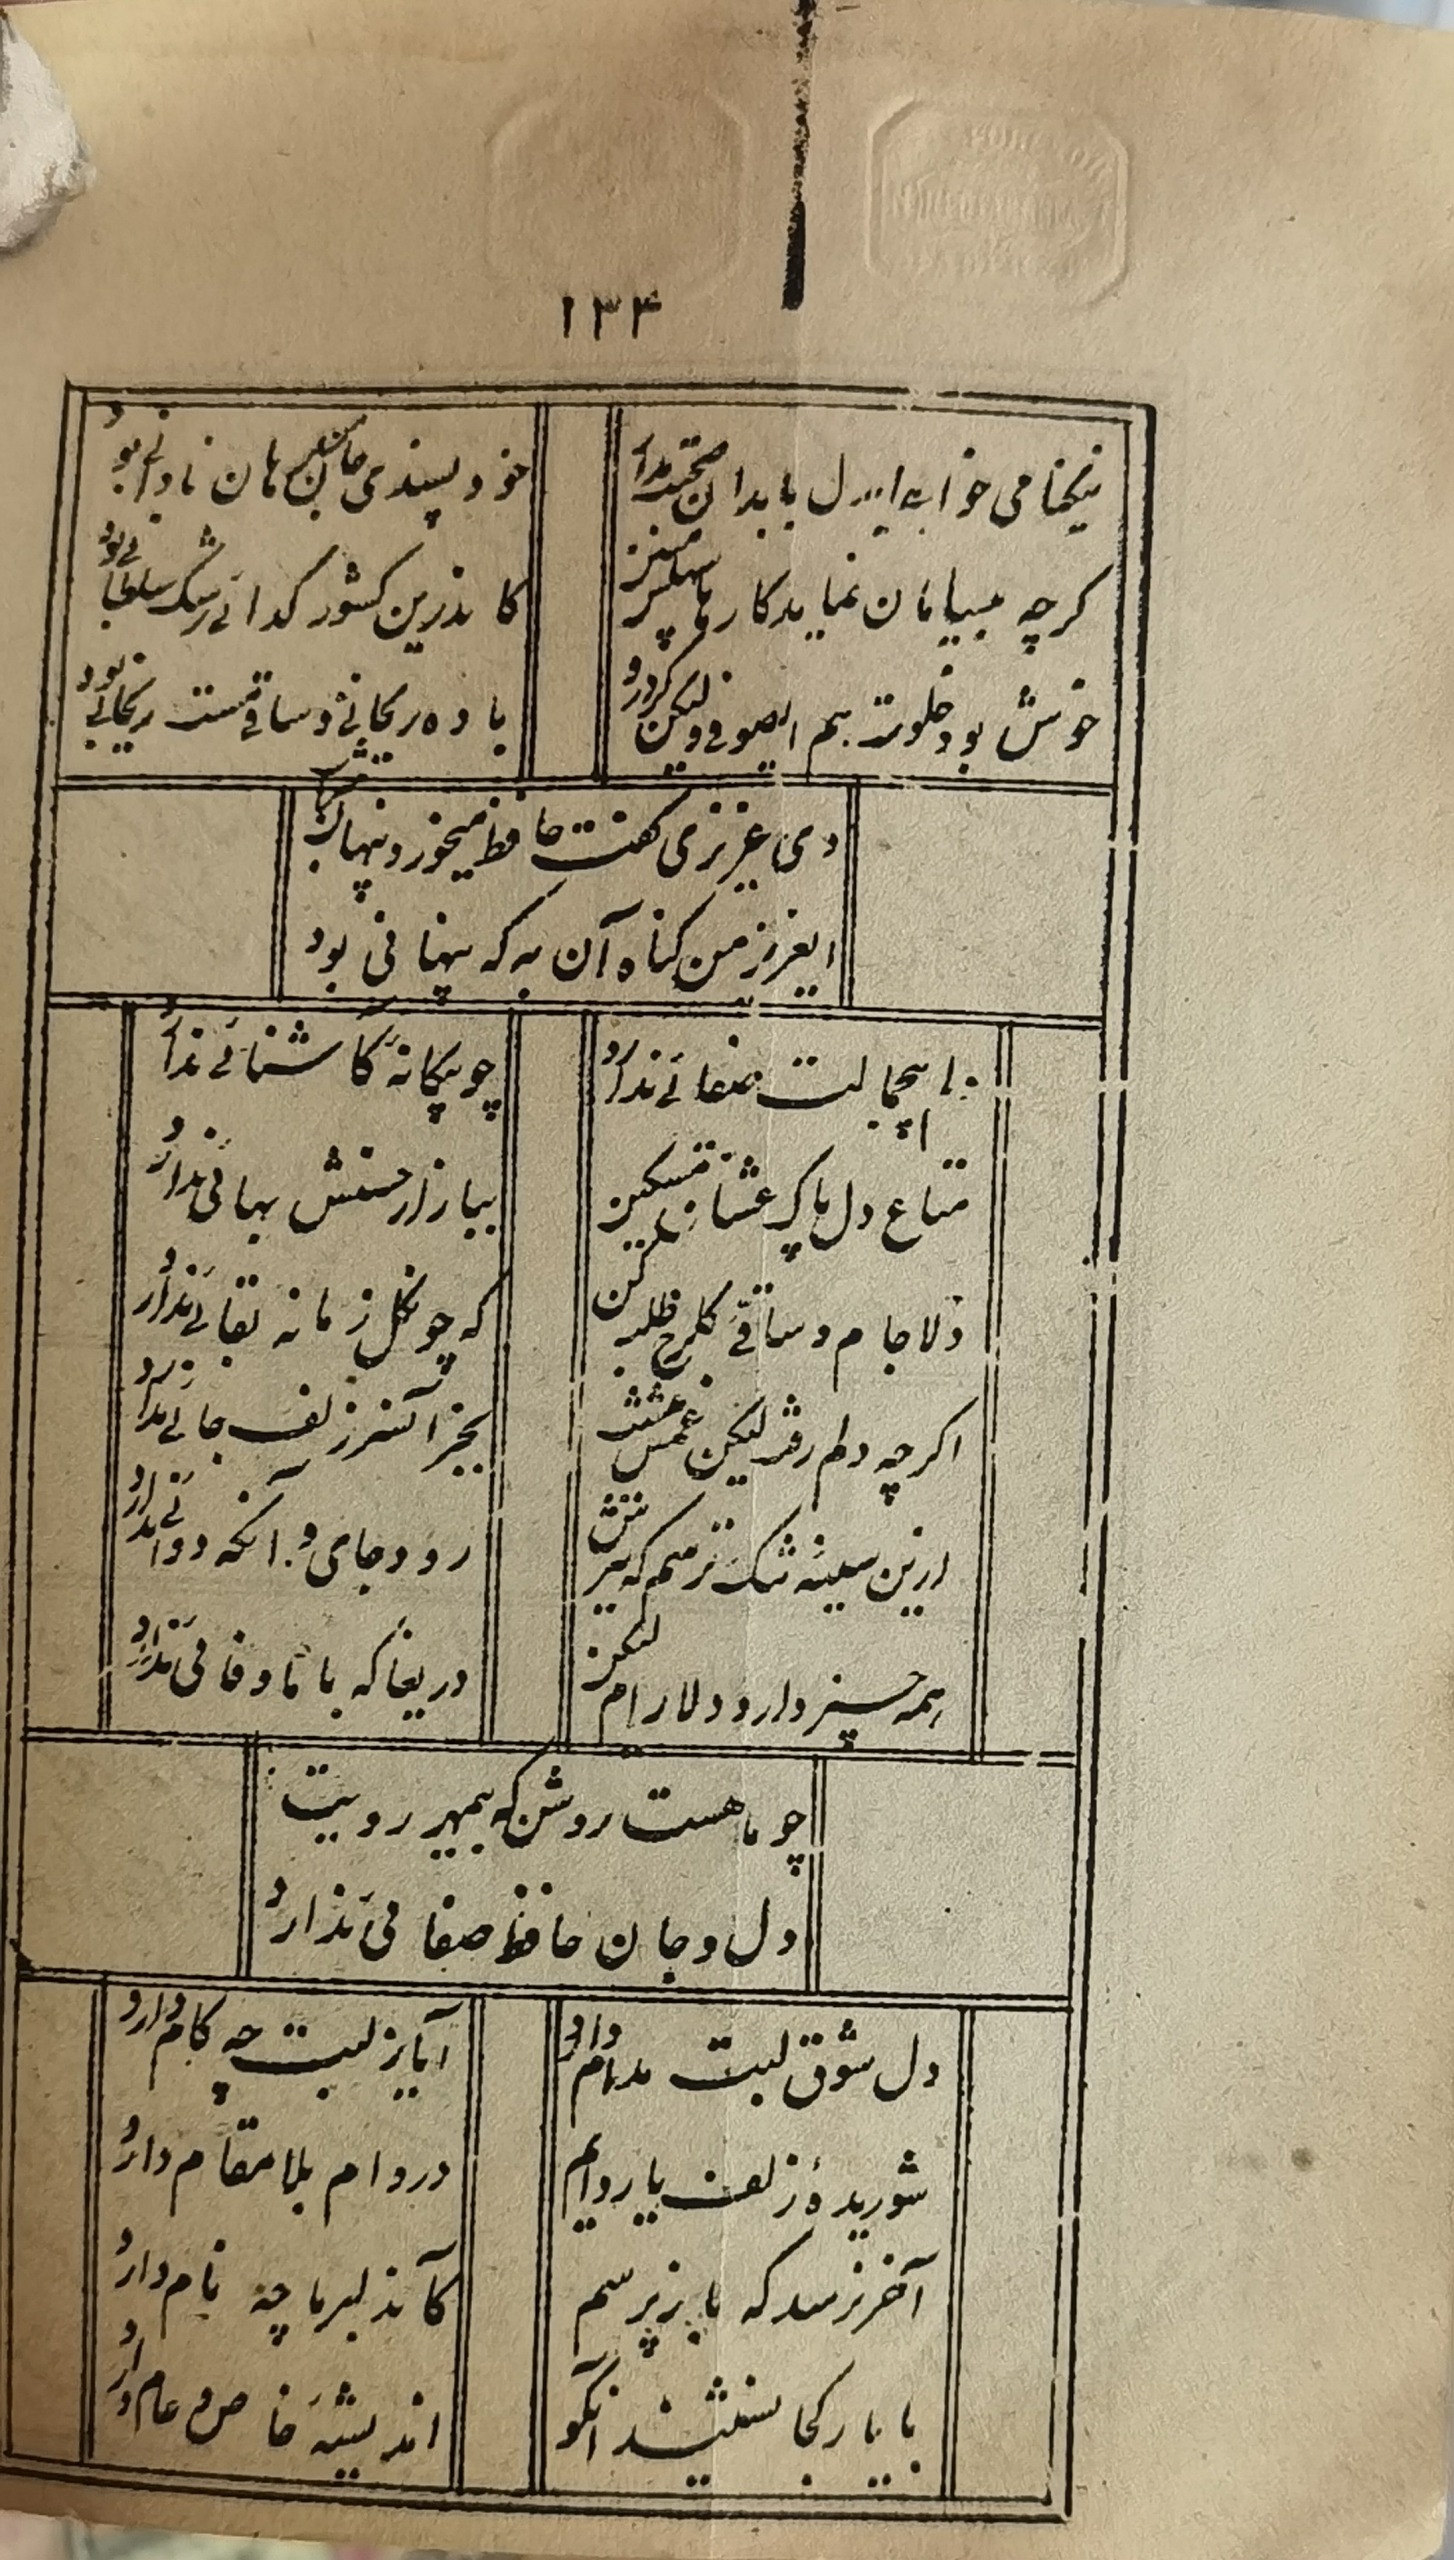 ۱۳۴
نیکنامی خواهی ایدل با بدان صحبت مدار
خود پسندی جان من برهان نادانی بود
گرچه بیسامان نماید کار ما سهلش مبین
کاندرین کشور گدائی رشک سلطانی بود
خوش بود خلوت هم ای صوفی ولیکن گر درو
باده ریحانی و ساقی مست ریحانی بود
دی عزیزی گفت حافظ میخورد پنهان شراب
ایعزیز من گناه آن به که پنهانی بود
چو بیگانهٔ کاشنائی ندارد
متاع دل پاک عشاق مسکین
ببازار حسنش بهائی ندارد
دلا جام و ساقی گلرخ طلب کن
که چون گل زمانه بقائی ندارد
اگرچه دلم رفت لیکن غم عشق
بجز آن سر زلف جائی ندارد
ازین سینهٔ تنگ ترسم که تیرش
رود جای و آنکه دوائی ندارد
همه چیز دارد دلارام لیکن
دریغا که با ما وفائی ندارد
چو ماهست روشن که بیمهر رویت
دل و جان حافظ صفائی ندارد
دل شوق لبت مدام دارد
آیا ز لبت چه کام دارد
شوریدهٔ زلف یار دایم
در دام بلا مقام دارد
آخر نرسد که باز پرسم
کآندلبر ما چه نام دارد
با یار کجا نشیند آنکو
اندیشهٔ خاص و عام دارد